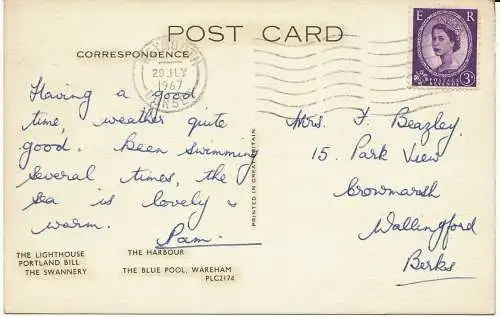 POST CARD
CORRESPONDENCE
WEYMOUTH
20 JLY
1967
DORSET
E R
POSTAGE
REVENUE
3D
Having a good
time, weather quite
good. Been swimming
several times, the
sea is lovely &
warm.
Pam.
PRINTED IN GREAT BRITAIN
Mrs. F. Beazley,
15, Park View
Crowmarsh
Wallingford
Berks
THE LIGHTHOUSE
PORTLAND BILL
THE SWANNERY
THE HARBOUR
THE BLUE POOL, WAREHAM
PLC2174